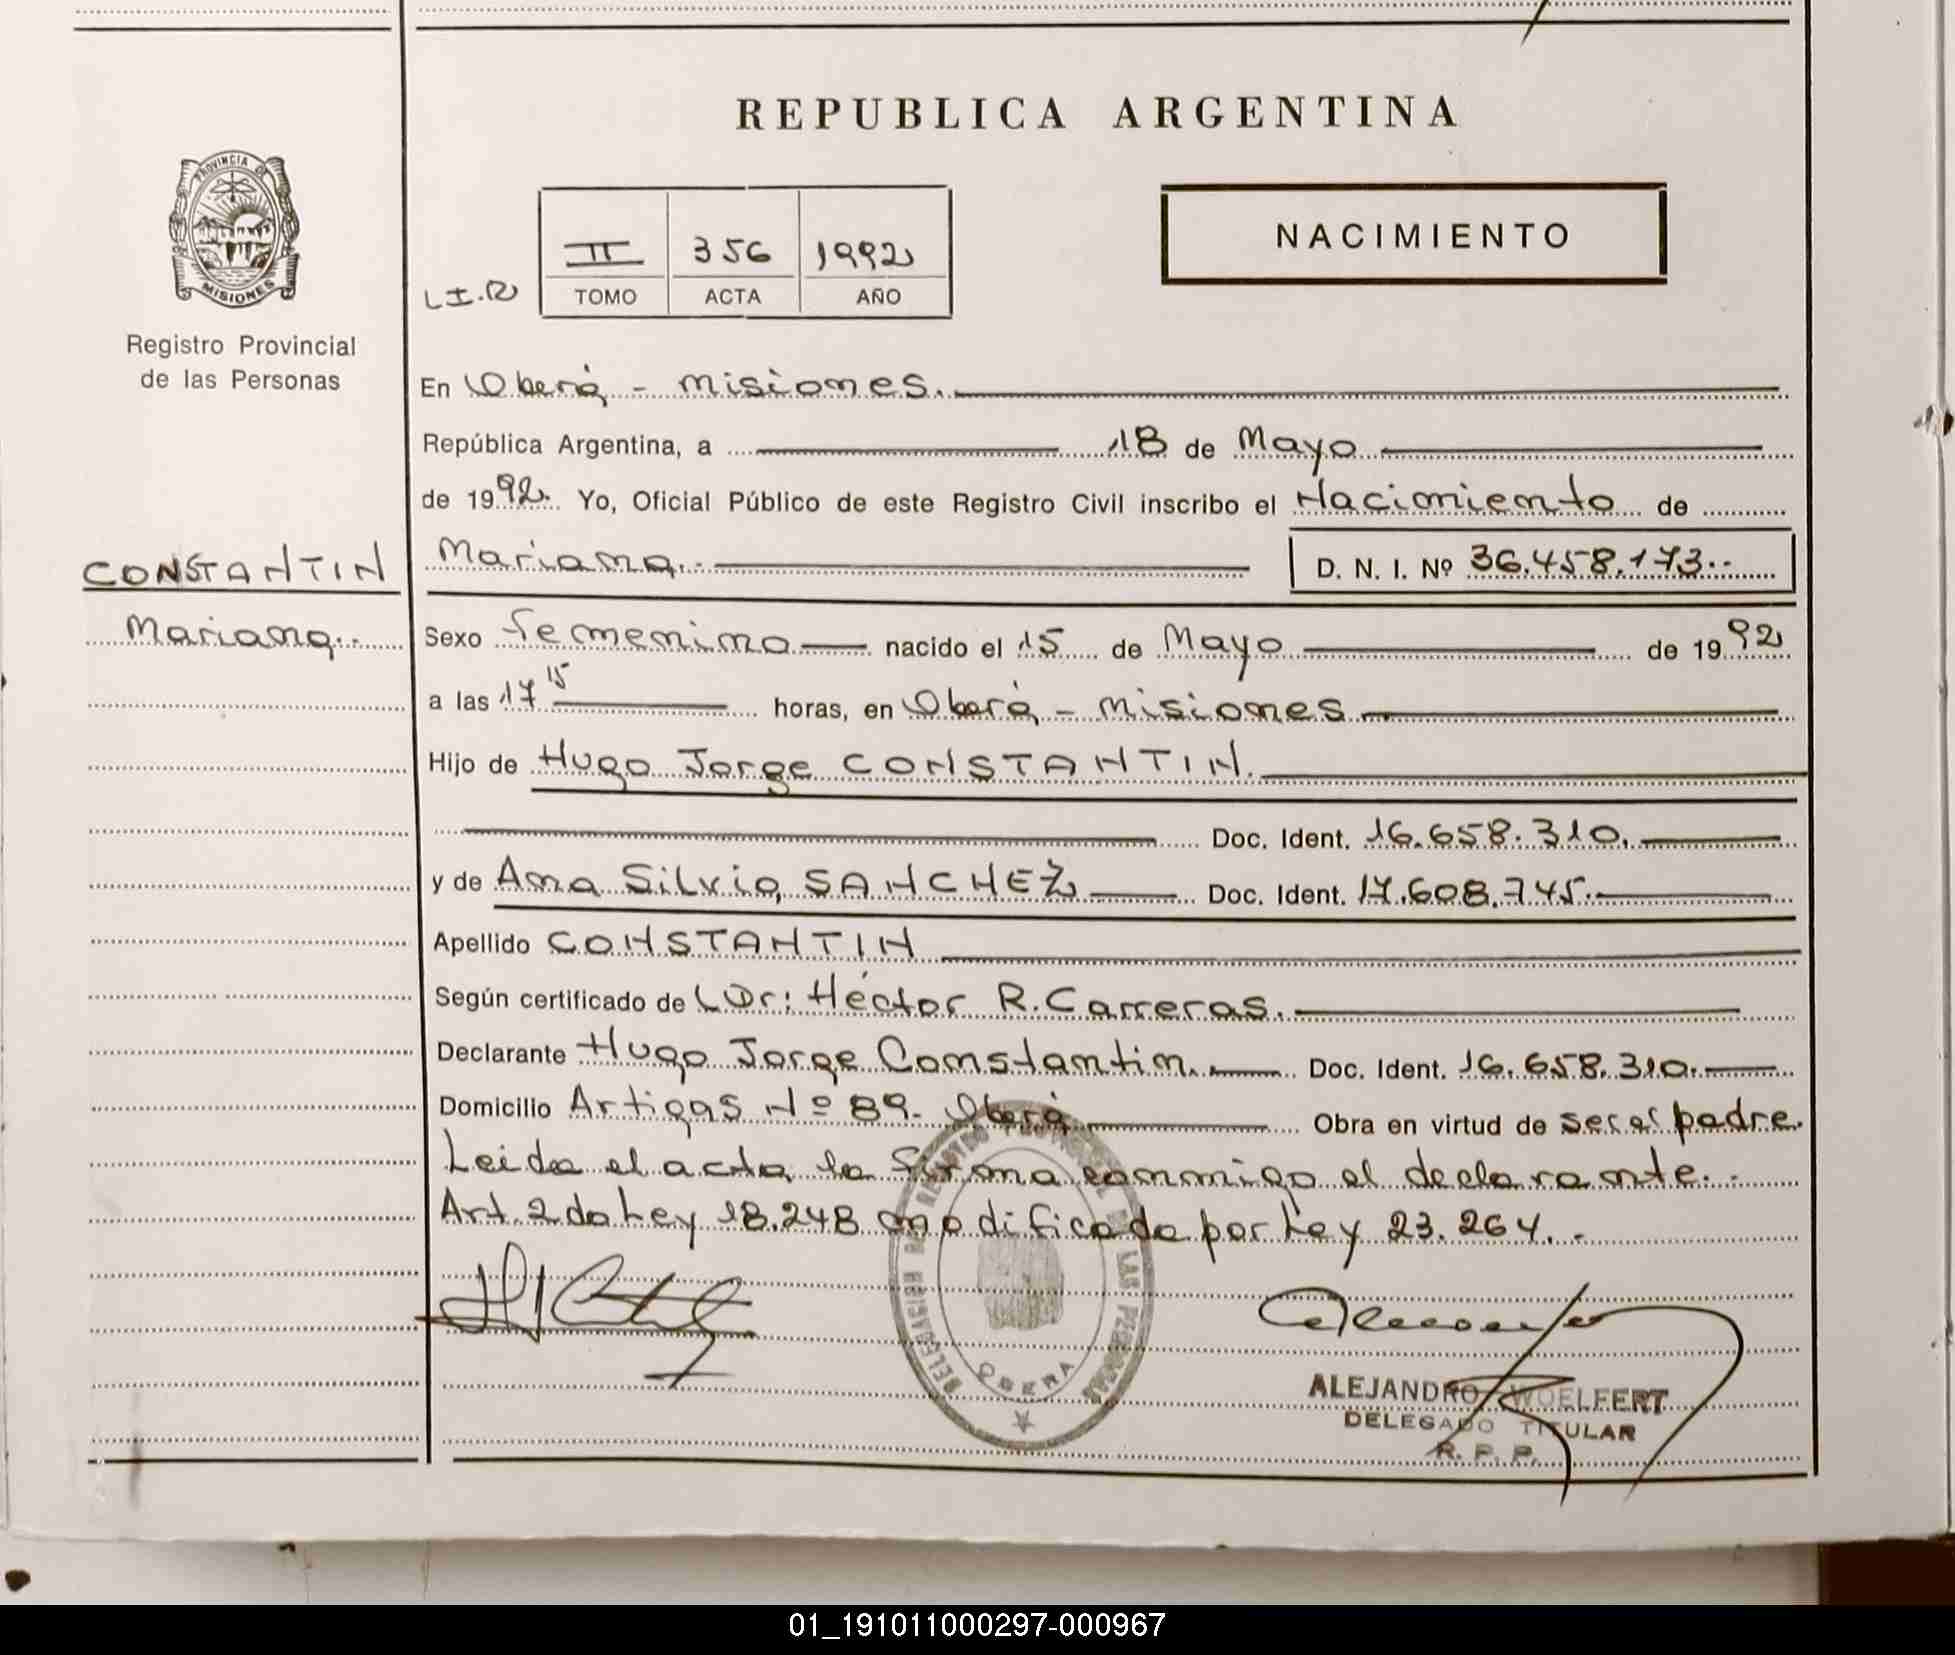 REPUBLICA ARGENTINA
PROVINCIA DE
MISIONES
Registro Provincial
de las Personas
II 356 1992
TOMO ACTA AÑO
NACIMIENTO
En Oberá - Misiones.
República Argentina, a 18 de Mayo
de 1992. Yo, Oficial Público de este Registro Civil inscribo el Nacimiento de
CONSTANTIN
Mariana.-
Mariana.- D. N. I. Nº 36.458.173..
Sexo femenino nacido el 15 de Mayo de 1992
a las 17 15 horas, en Oberá - Misiones
Hijo de Hugo Jorge CONSTANTIN.
Doc. Ident. 16.658.310.
y de Ana Silvia SANCHEZ Doc. Ident. 17.608.745.
Apellido CONSTANTIN
Según certificado de Dr: Héctor R. Carreras.
Declarante Hugo Jorge Constantin. Doc. Ident. 16.658.310.
Domicilio Artigas Nº 89. Oberá Obra en virtud de ser el padre.
Leida el acta la firma conmigo el declarante.-
Art. 2 da Ley 18.248 modificada por Ley 23.264.-
OBERA
LAS PERSONAS
ALEJANDRO WOELFERT
DELEGADO TITULAR
R. P. P.
01_191011000297-000967